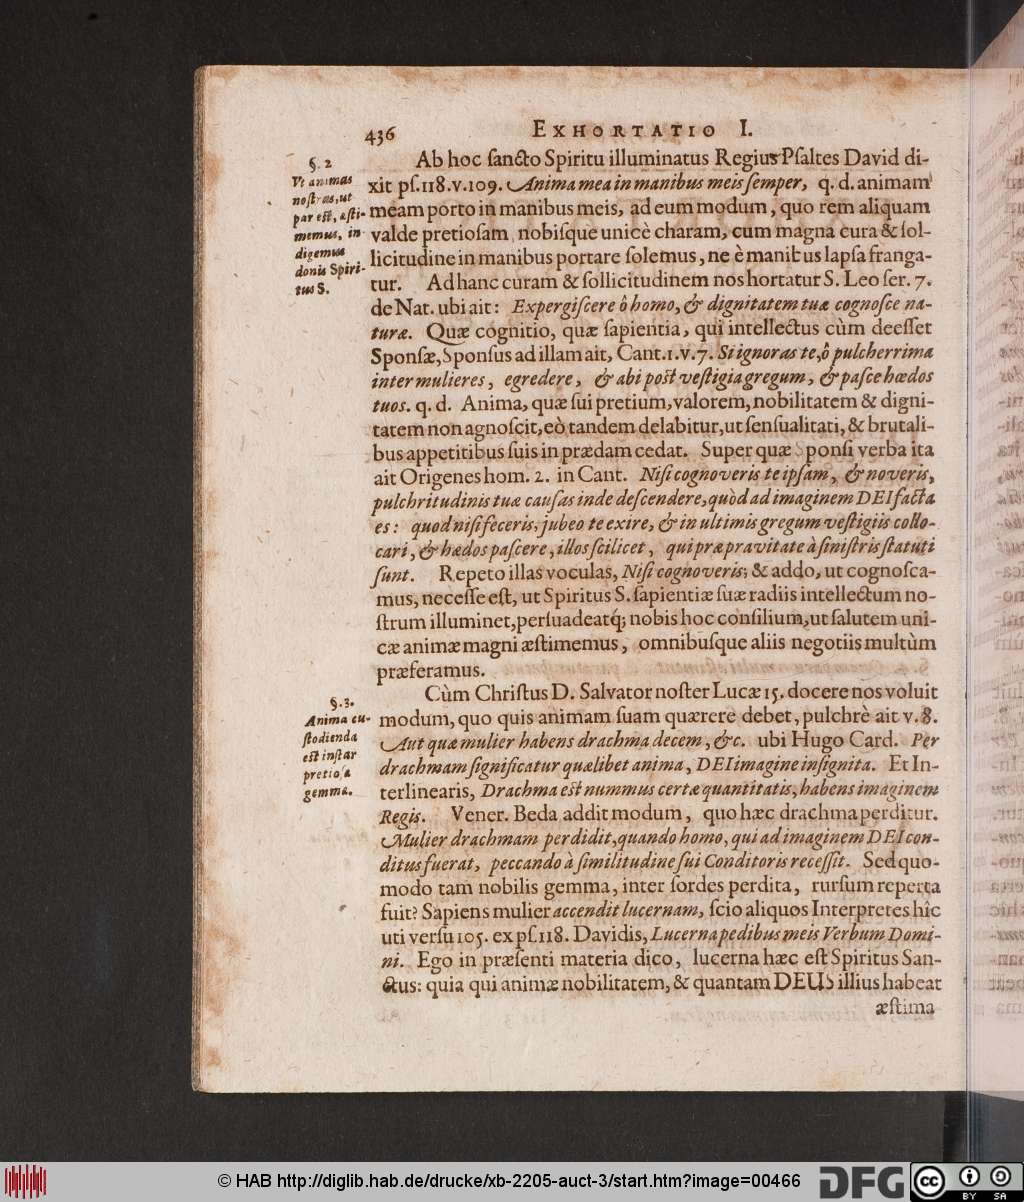 436
EXHORTATIO I.
§. 2
Vt animas
nostras, ut
par est, æsti-
memus, in-
digemus
donis Spiri-
tus S.
Ab hoc sancto Spiritu illuminatus Regius Psaltes David di-
xit ps. 118. v. 109. Anima mea in manibus meis semper, q. d. animam
meam porto in manibus meis, ad eum modum, quo rem aliquam
valde pretiosam nobisque unicè charam, cum magna cura & sol-
licitudine in manibus portare solemus, ne è manibus lapsa franga-
tur. Ad hanc curam & sollicitudinem nos hortatur S. Leo ser. 7.
de Nat. ubi ait: Expergiscere ô homo, & dignitatem tuæ cognosce na-
turæ. Quæ cognitio, quæ sapientia, qui intellectus cùm deesset
Sponsæ, Sponsus ad illam ait, Cant. 1. v. 7. Si ignoras te, ô pulcherrima
inter mulieres, egredere, & abi post vestigia gregum, & pasce hœdos
tuos. q. d. Anima, quæ sui pretium, valorem, nobilitatem & digni-
tatem non agnoscit, eò tandem delabitur, ut sensualitati, & brutali-
bus appetitibus suis in prædam cedat. Super quæ Sponsi verba ita
ait Origenes hom. 2. in Cant. Nisi cognoveris te ipsam, & noveris,
pulchritudinis tuæ causas inde descendere, quòd ad imaginem DEI facta
es: quod nisi feceris, jubeo te exire, & in ultimis gregum vestigiis collo-
cari, & hædos pascere, illos scilicet, qui præ pravitate à sinistris statuti
sunt. Repeto illas voculas, Nisi cognoveris; & addo, ut cognosca-
mus, necesse est, ut Spiritus S. sapientiæ suæ radiis intellectum no-
strum illuminet, persuadeatq; nobis hoc consilium, ut salutem uni-
cæ animæ magni æstimemus, omnibusque aliis negotiis multùm
præferamus.
§. 3.
Anima cu-
stodienda
est instar
pretiosæ
gemmæ.
Cùm Christus D. Salvator noster Lucæ 15. docere nos voluit
modum, quo quis animam suam quærere debet, pulchrè ait v. 8.
Aut quæ mulier habens drachma decem, &c. ubi Hugo Card. Per
drachmam significatur quælibet anima, DEI imagine insignita. Et In-
terlinearis, Drachma est nummus certæ quantitatis, habens imaginem
Regis. Vener. Beda addit modum, quo hæc drachma perditur.
Mulier drachmam perdidit, quando homo, qui ad imaginem DEI con-
ditus fuerat, peccando à similitudine sui Conditoris recessit. Sed quo-
modo tam nobilis gemma, inter sordes perdita, rursum reperta
fuit? Sapiens mulier accendit lucernam, scio aliquos Interpretes hîc
uti versu 105. ex ps. 118. Davidis, Lucerna pedibus meis Verbum Domi-
ni. Ego in præsenti materia dico, lucerna hæc est Spiritus San-
ctus: quia qui animæ nobilitatem, & quantam DEUS illius habeat
æstima
© HAB http://diglib.hab.de/drucke/xb-2205-auct-3/start.htm?image=00466
DFG
cc
BY SA